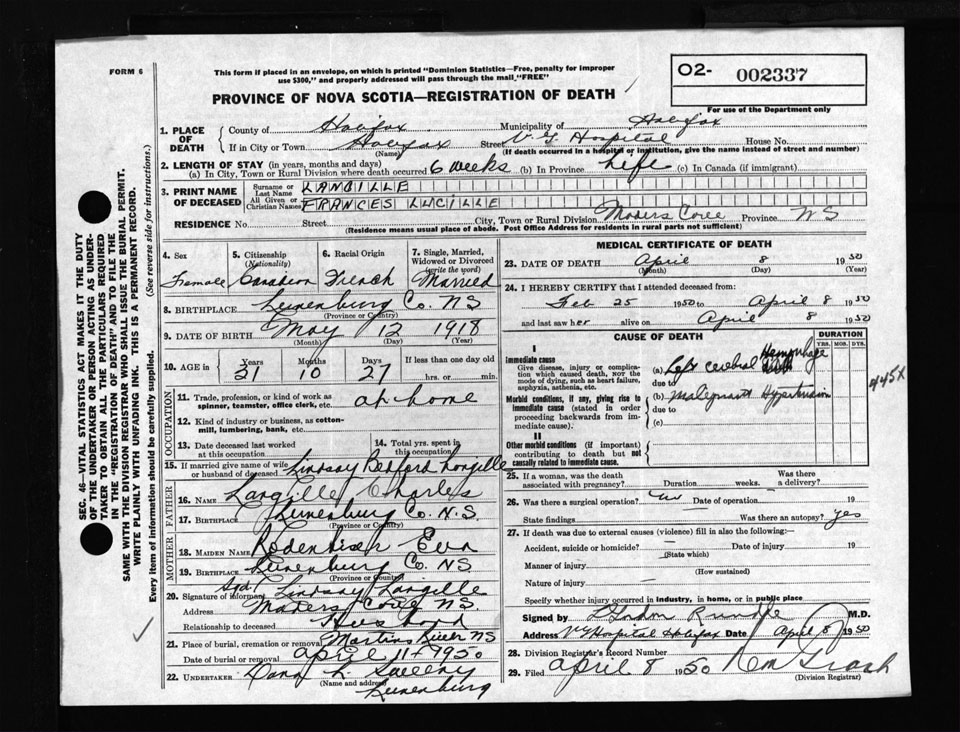 FORM 6
This form if placed in an envelope, on which is printed "Dominion Statistics—Free, penalty for improper
use $300," and properly addressed will pass through the mail "FREE"
PROVINCE OF NOVA SCOTIA—REGISTRATION OF DEATH
O2- 002337
For use of the Department only
1. PLACE OF DEATH
County of Halifax Municipality of Halifax
If in City or Town Halifax Street V G Hospital House No.
(Name) (If death occurred in a hospital or institution, give the name instead of street and number)
2. LENGTH OF STAY (in years, months and days)
(a) In City, Town or Rural Division where death occurred 6 weeks (b) In Province Life (c) In Canada (if immigrant)
3. PRINT NAME OF DECEASED
Surname or Last Name LANGILLE
All Given or Christian Names FRANCES LUCILLE
RESIDENCE No. Street City, Town or Rural Division Maders Cove Province NS
(Residence means usual place of abode. Post Office Address for residents in rural parts not sufficient)
4. Sex Female
5. Citizenship (Nationality) Canadian
6. Racial Origin French
7. Single, Married, Widowed or Divorced (write the word) Married
8. BIRTHPLACE Lunenburg Co. NS
(Province or Country)
9. DATE OF BIRTH May 12 1918
(Month) (Day) (Year)
10. AGE in Years 31 Months 10 Days 27 If less than one day old hrs. or min.
OCCUPATION
11. Trade, profession, or kind of work as spinner, teamster, office clerk, etc. at home
12. Kind of industry or business, as cotton-mill, lumbering, bank, etc.
13. Date deceased last worked at this occupation
14. Total yrs. spent in this occupation
15. If married give name of wife or husband of deceased Lindsay Bedford Langille
FATHER
16. NAME Langille Charles
17. BIRTHPLACE Lunenburg Co. N.S.
(Province or Country)
MOTHER
18. MAIDEN NAME Rodenhiser Eva
19. BIRTHPLACE Lunenburg Co. NS
(Province or Country)
20. Signature of informant Sgd. Lindsay Langille
Address Maders Cove NS.
Relationship to deceased Husband
21. Place of burial, cremation or removal Martins River NS
Date of burial or removal April 11th 1950
22. UNDERTAKER Dana L. Sweeny
(Name and address) Lunenburg
MEDICAL CERTIFICATE OF DEATH
23. DATE OF DEATH April 8 1950
(Month) (Day) (Year)
24. I HEREBY CERTIFY that I attended deceased from:
Feb 25 1950 to April 8 1950
and last saw her alive on April 8 1950
CAUSE OF DEATH
DURATION
YRS. MOS. DYS.
I
Immediate cause
Give disease, injury or complication which caused death, not the mode of dying, such as heart failure, asphyxia, asthenia, etc.
(a) Left cerebral Hemorrhage
due to
Morbid conditions, if any, giving rise to immediate cause (stated in order proceeding backwards from immediate cause).
(b) Malignant Hypertension
due to
(c)
445X
II
Other morbid conditions (if important) contributing to death but not causally related to immediate cause.
25. If a woman, was the death associated with pregnancy? Duration weeks. Was there a delivery?
26. Was there a surgical operation? no Date of operation 19
State findings Was there an autopsy? yes
27. If death was due to external causes (violence) fill in also the following:—
Accident, suicide or homicide? — Date of injury 19
(State which)
Manner of injury
(How sustained)
Nature of injury —
Specify whether injury occurred in industry, in home, or in public place
Signed by Gordon M.D.
Address VG Hospital Halifax Date April 8 1950
28. Division Registrar's Record Number
29. Filed April 8 1950
(Division Registrar)
SEC. 46—VITAL STATISTICS ACT MAKES IT THE DUTY
OF THE UNDERTAKER OR PERSON ACTING AS UNDER-
TAKER TO OBTAIN ALL THE PARTICULARS REQUIRED
IN THE "REGISTRATION OF DEATH" AND TO FILE THE
SAME WITH THE DIVISION REGISTRAR WHO SHALL ISSUE THE BURIAL PERMIT.
WRITE PLAINLY WITH UNFADING INK. THIS IS A PERMANENT RECORD.
Every item of information should be carefully supplied. (See reverse side for instructions.)